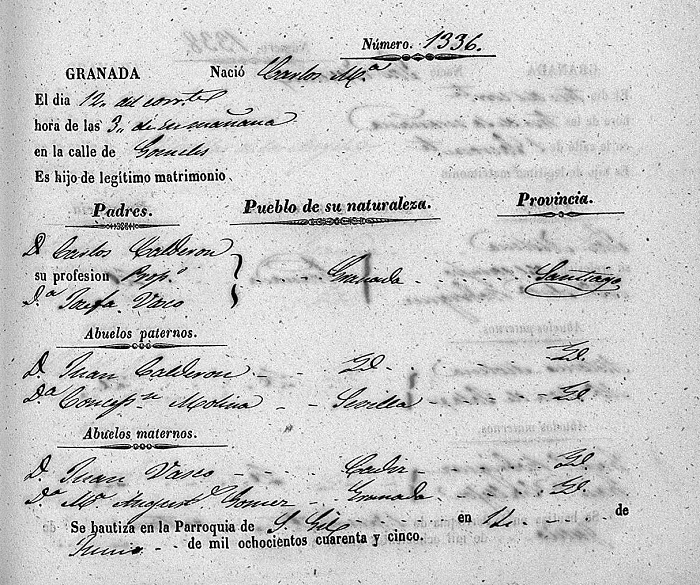 Número. 1336.
GRANADA Nació Carlos Mª
El dia 12. del corrte
hora de las 3,, de su mañana
en la calle de Gomeles
Es hijo de legítimo matrimonio
Padres. Pueblo de su naturaleza. Provincia.
D. Carlos Calderon
su profesion Propº Granada Santiago
D.ª Josefa Vasco
Abuelos paternos.
D. Juan Calderon - - Yd - - Yd.
D.ª Concepn Molina - - Sevilla - - Yd.
Abuelos maternos.
D. Juan Vasco - - Cadiz - - Yd.
D.ª Mª August Gomez - Granada - - Yd.
Se bautiza en la Parroquia de S. Gil en de
Junio - - de mil ochocientos cuarenta y cinco.